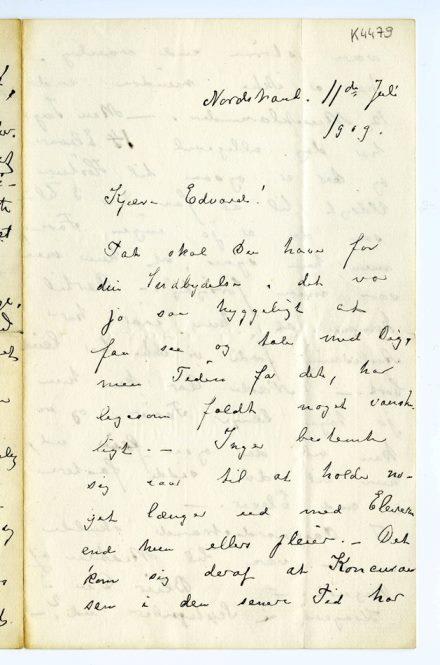 K4479
Nordstrand. 11te Juli
1909.
Kjære Edvard!
Tak skal Du have for
din Indbydelse, det var
jo saa hyggeligt at
faa se og tale med Dig,
men Tiden for det, har
ligesom faldt noget vanske-
ligt. — Inger bestemte
sig iaar til at holde no-
get længer ud med Eleverne
end hun ellers pleier. — Det
kom sig deraf at Koncurran
sen i den senere Tid har